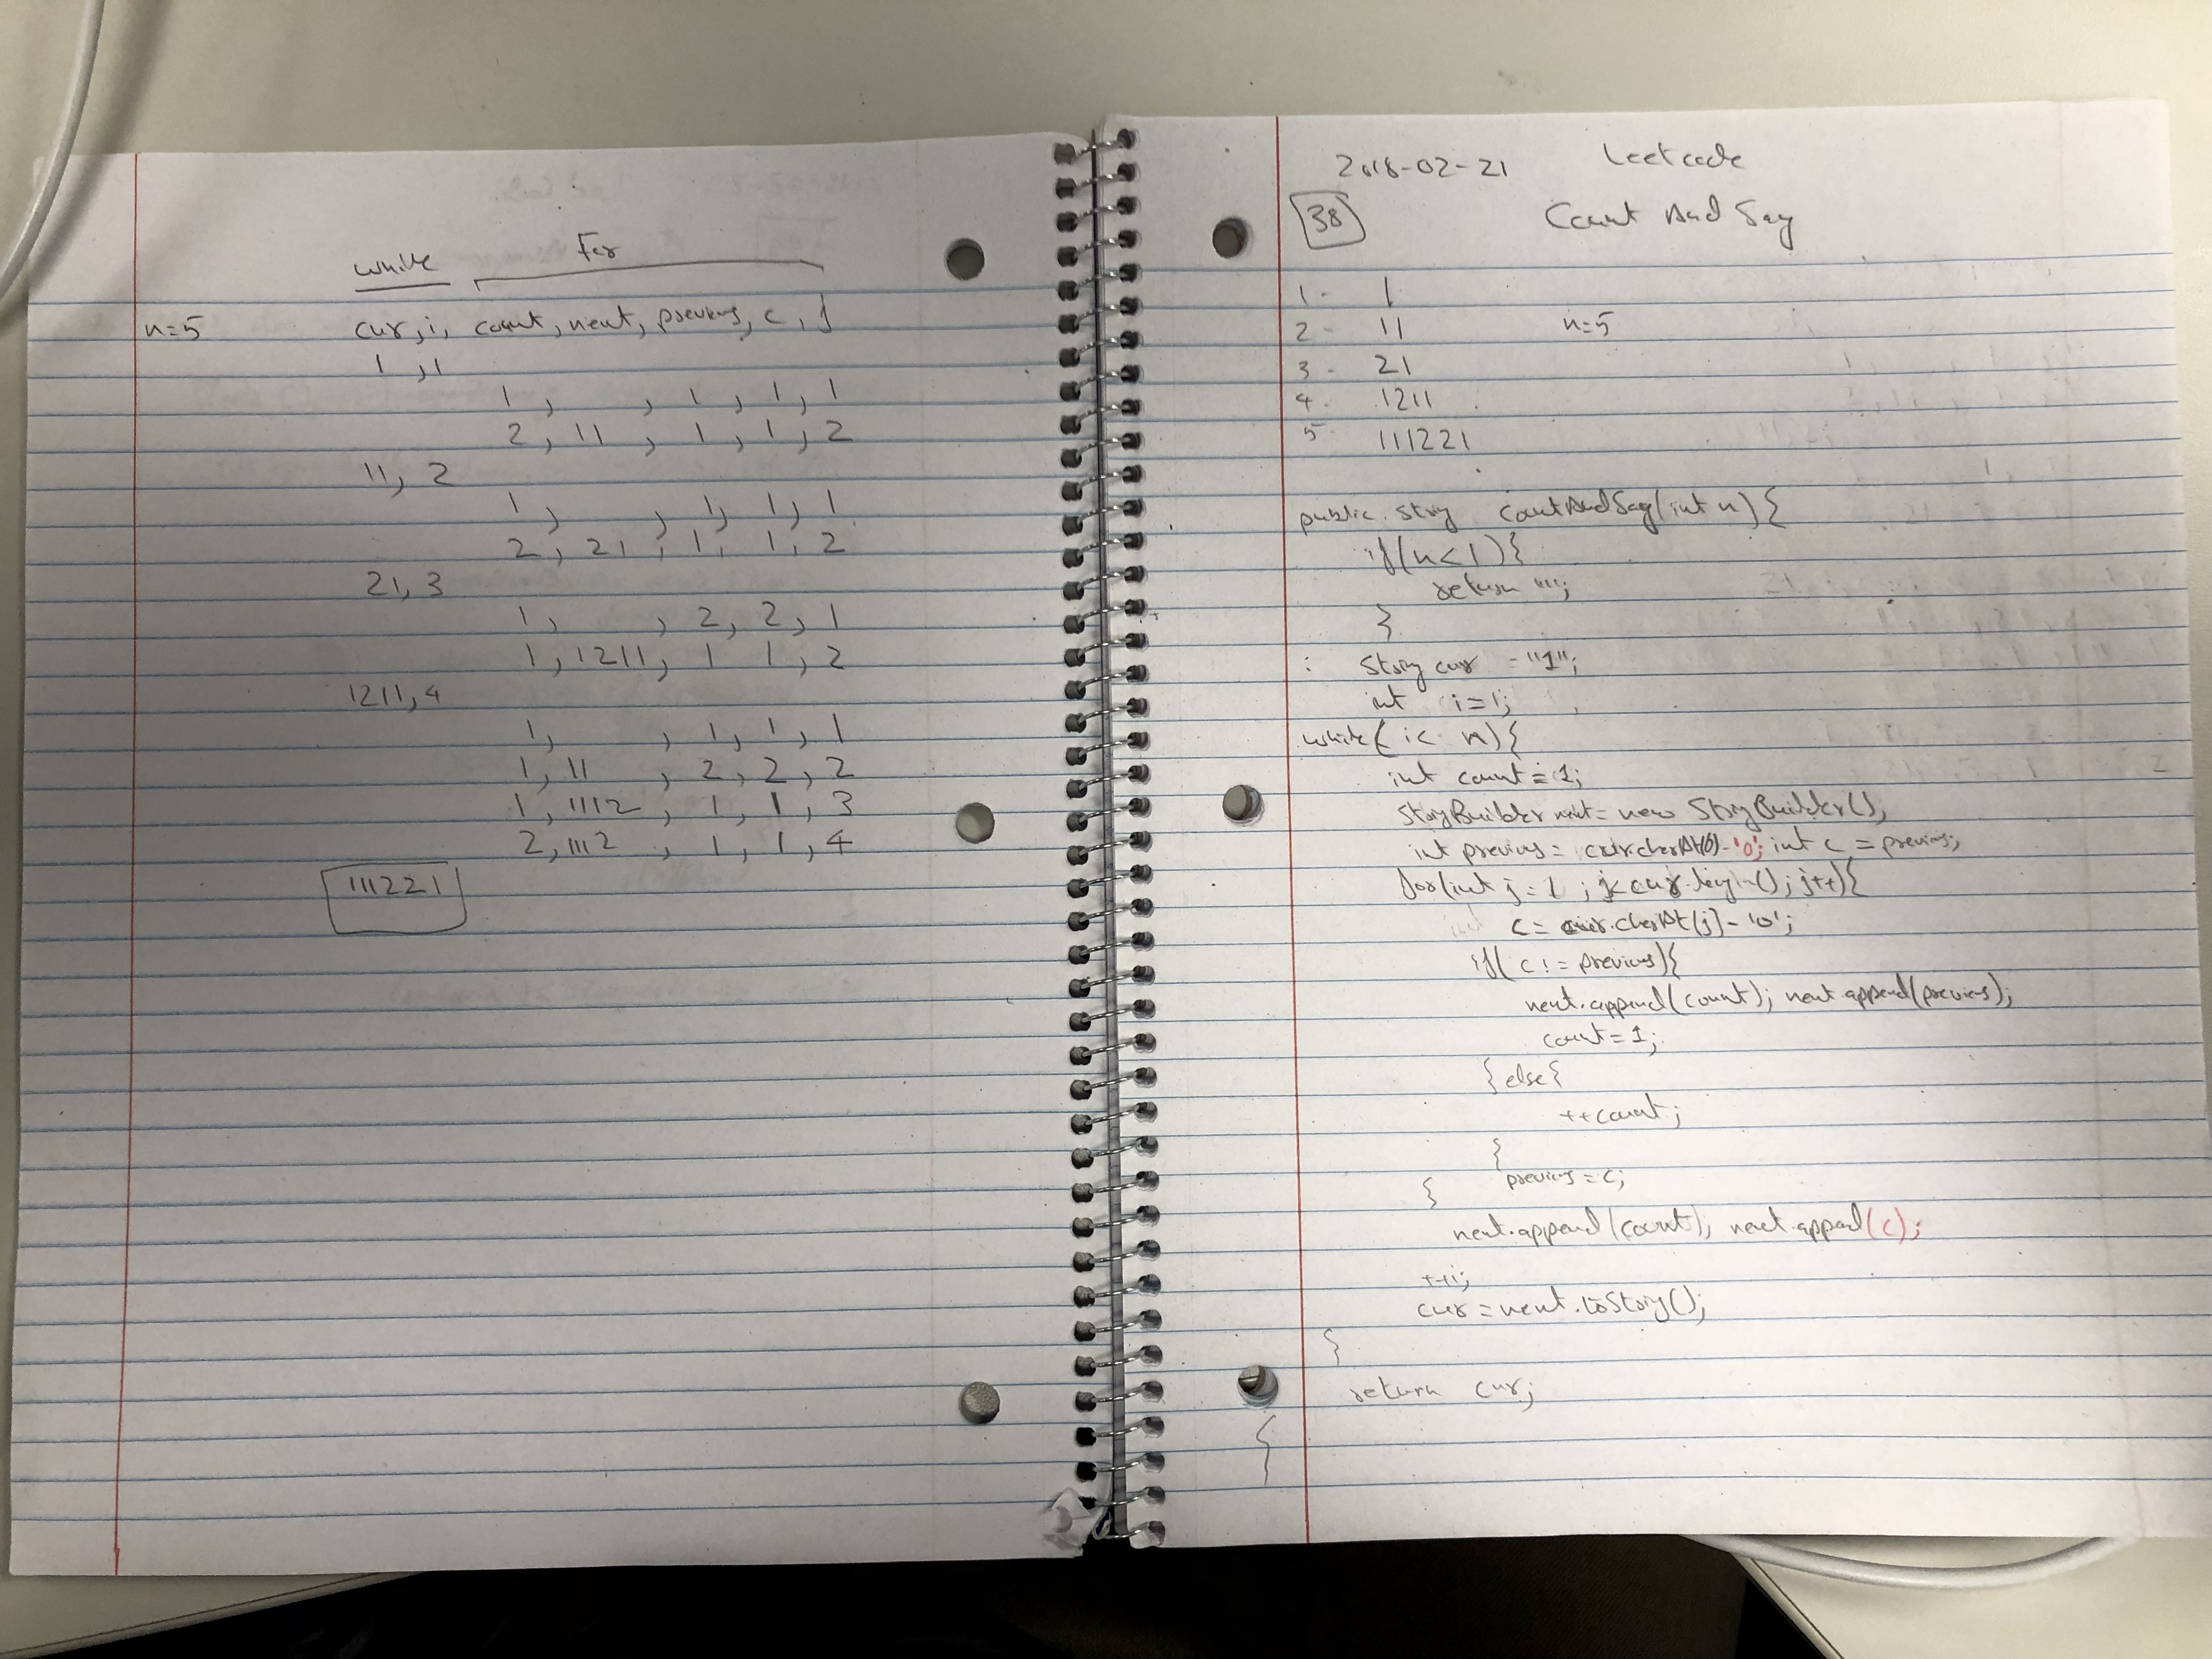 while For
n=5 cur, i, count, next, previous, c, j
1, 1
1, , 1, 1, 1
2, 11, 1, 1, 2
11, 2
1, , 1, 1, 1
2, 21, 1, 1, 2
21, 3
1, , 2, 2, 1
1, 1211, 1 1, 2
1211, 4
1, , 1, 1, 1
1, 11, 2, 2, 2
1, 1112, 1, 1, 3
2, 1112, 1, 1, 4
111221
2018-02-21 Leetcode
38 Count And Say
1- 1
2- 11 n=5
3- 21
4- 1211
5- 111221
public String countAndSay(int n){
if(n<1){
return "";
}
String cur = "1";
int i=1;
while( i< n){
int count = 1;
StringBuilder next = new StringBuilder();
int previous = cur.charAt(0)-'0'; int c = previous;
for(int j=1; j<cur.length(); j++){
c = cur.charAt(j)-'0';
if( c != previous){
next.append(count); next.append(previous);
count = 1;
} else {
++count;
}
previous = c;
}
next.append(count); next.append(c);
++i;
cur = next.toString();
}
return cur;
}